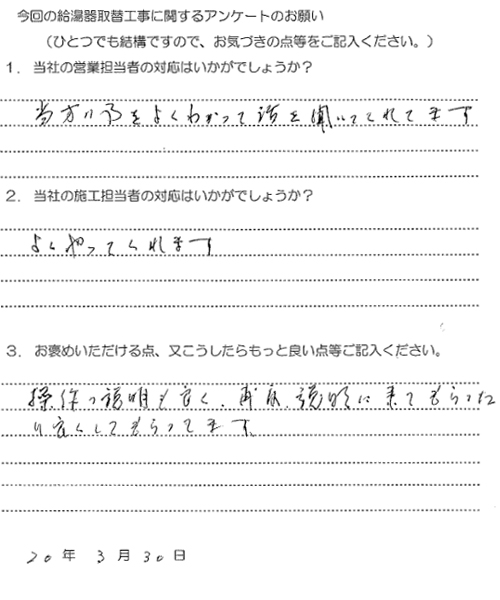 今回の給湯器取替工事に関するアンケートのお願い
（ひとつでも結構ですので、お気づきの点等をご記入ください。）
１．当社の営業担当者の対応はいかがでしょうか？
当方の をよくわかって話を聞いてくれてます
２．当社の施工担当者の対応はいかがでしょうか？
よくやってくれます
３．お褒めいただける点、又こうしたらもっと良い点等ご記入ください。
操作の説明も良く、再度、説明に来てもらった
り良くしてもらってます
20年 3月30日